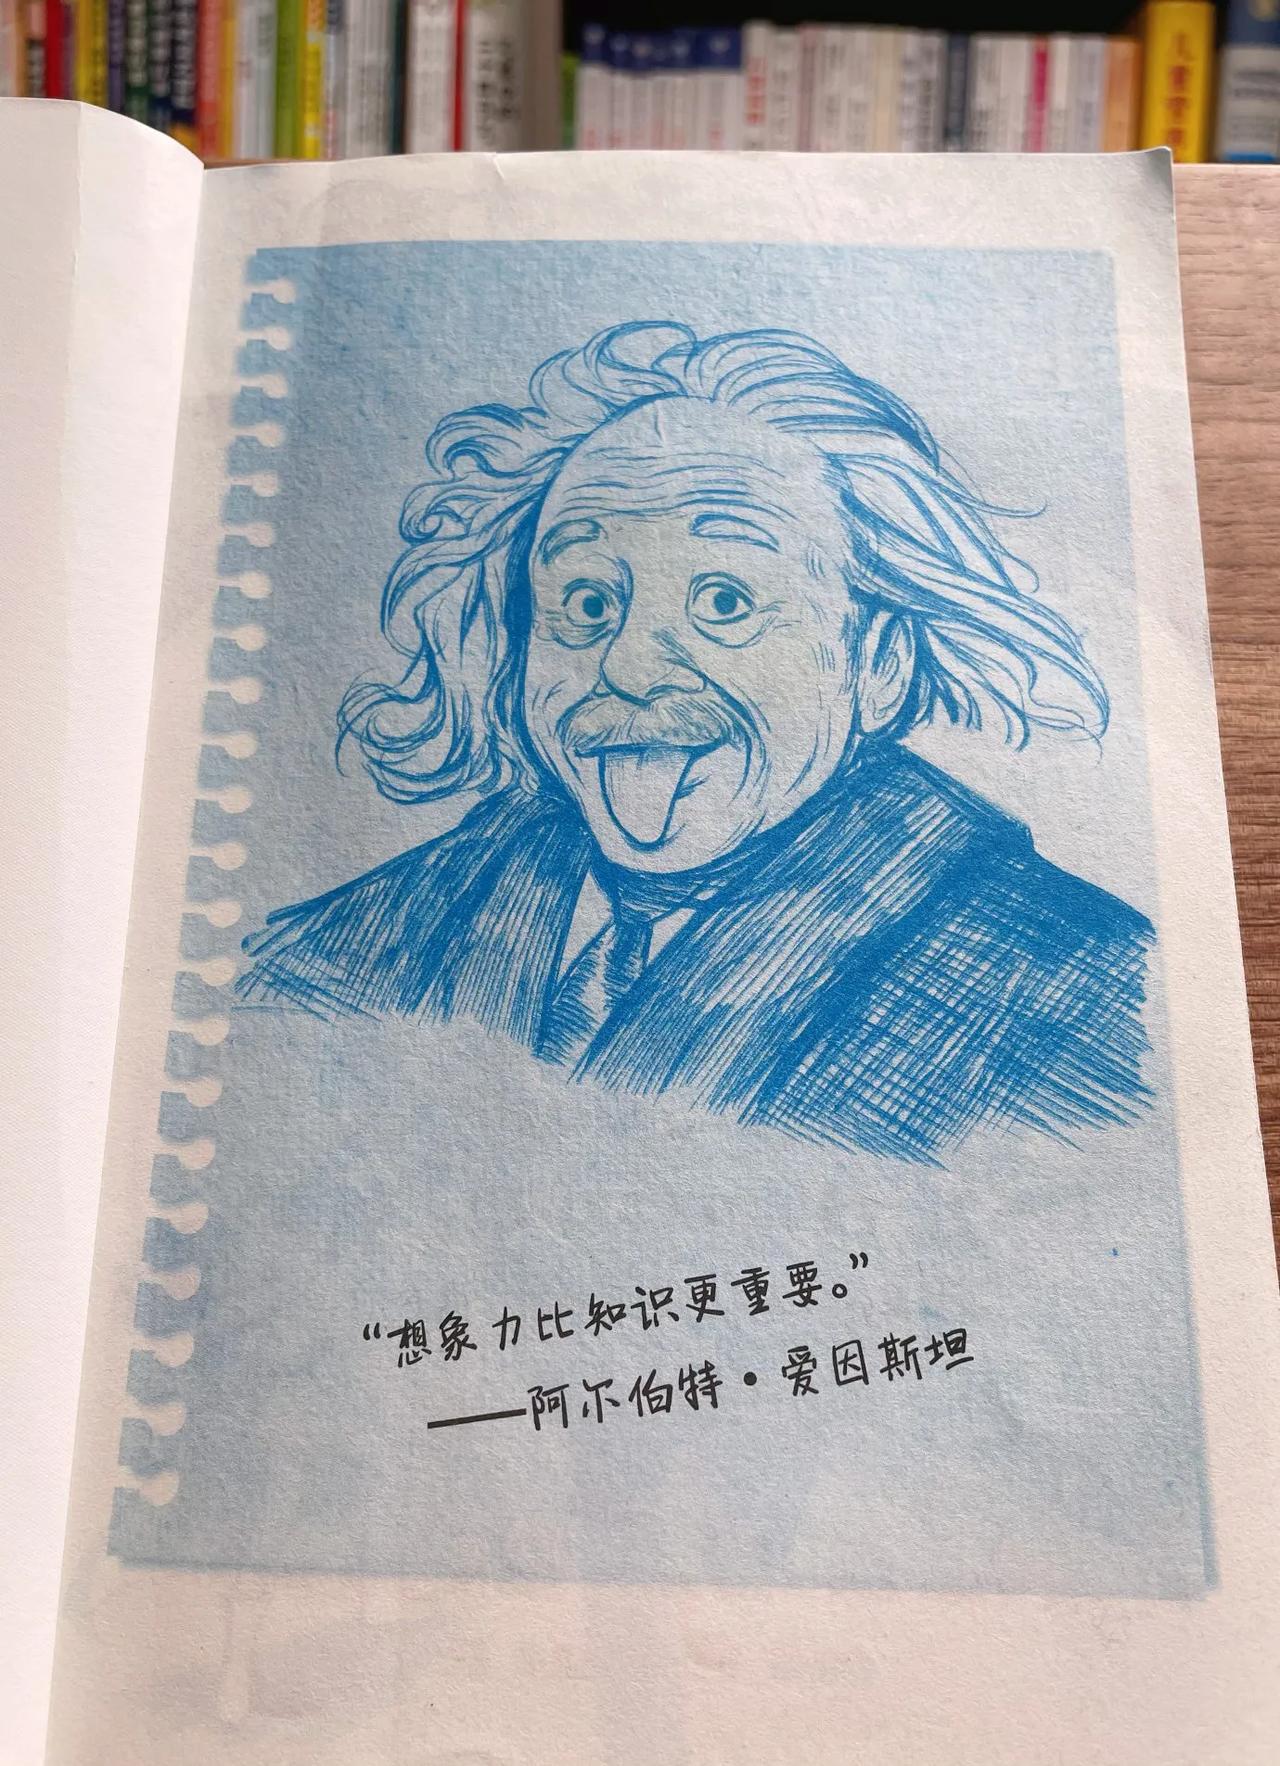 “想象力比知识更重要。”
——阿尔伯特·爱因斯坦